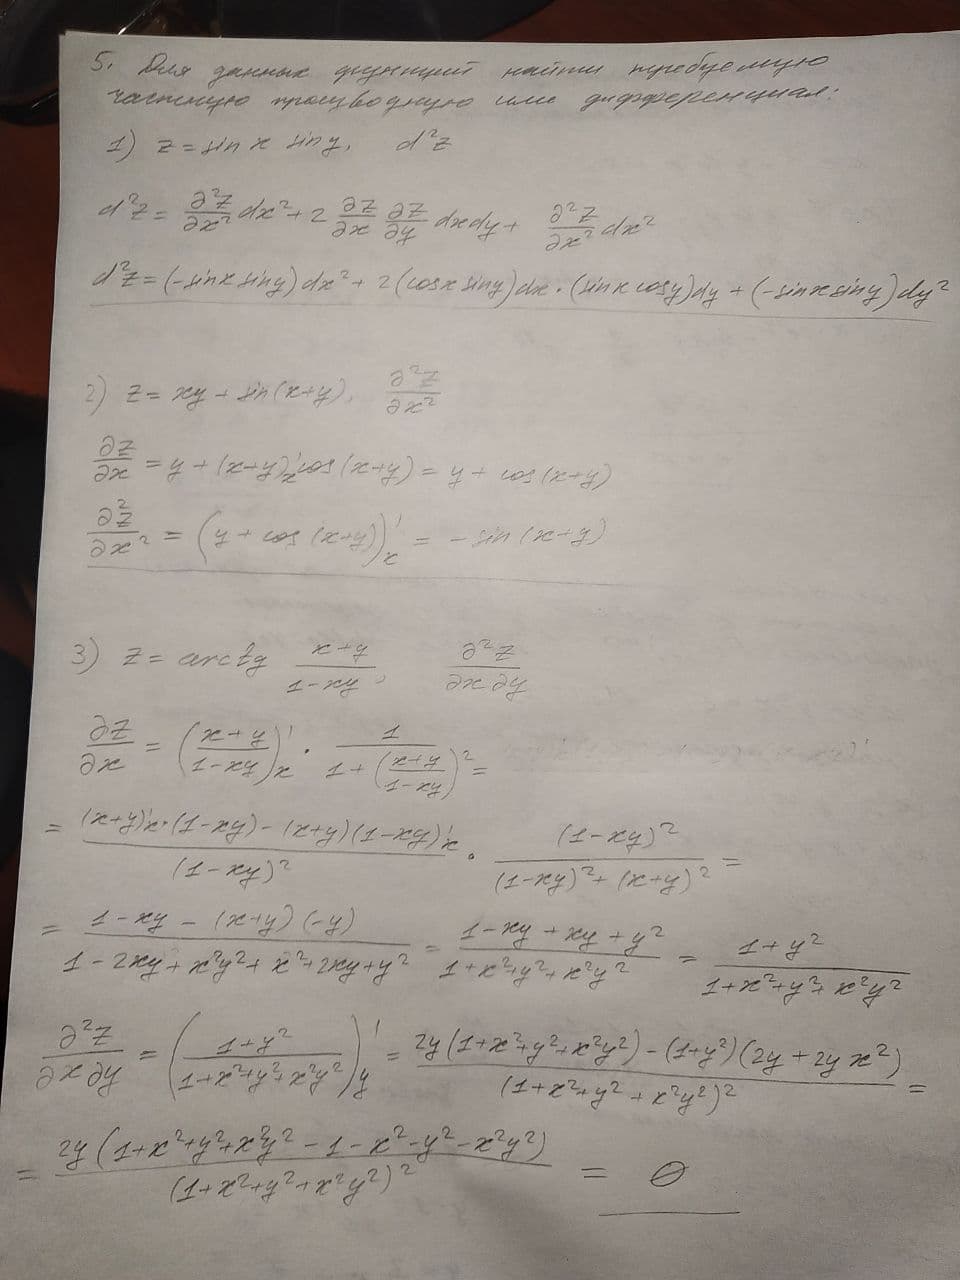 5. Для данных функций найти требуемую
частную производную или дифференциал:
1) z = sin x sin y, d²z
d²z = ∂²z/∂x² dx² + 2 ∂z/∂x ∂z/∂y dxdy + ∂²z/∂x² dx²
d²z = (-sinx siny) dx² + 2 (cosx siny) dx · (sinx cosy) dy + (-sinx siny) dy²
2) z = xy + sin(x+y), ∂²z/∂x²
∂z/∂x = y + (x+y)'ₓ cos(x+y) = y + cos(x+y)
∂²z/∂x² = (y + cos(x+y))'ₓ = - sin(x+y)
3) z = arctg (x+y)/(1-xy), ∂²z/∂x∂y
∂z/∂x = ((x+y)/(1-xy))'ₓ · 1/(1+((x+y)/(1-xy))²) =
= ((x+y)'ₓ·(1-xy) - (x+y)(1-xy)'ₓ)/(1-xy)² · (1-xy)²/((1-xy)²+(x+y)²) =
= (1-xy - (x+y)(-y))/(1-2xy+x²y²+x²+2xy+y²) = (1-xy+xy+y²)/(1+x²+y²+x²y²) = (1+y²)/(1+x²+y²+x²y²)
∂²z/∂x∂y = ((1+y²)/(1+x²+y²+x²y²))'y = (2y(1+x²+y²+x²y²) - (1+y²)(2y+2yx²))/(1+x²+y²+x²y²)² =
= 2y(1+x²+y²+x²y²-1-x²-y²-x²y²)/(1+x²+y²+x²y²)² = 0